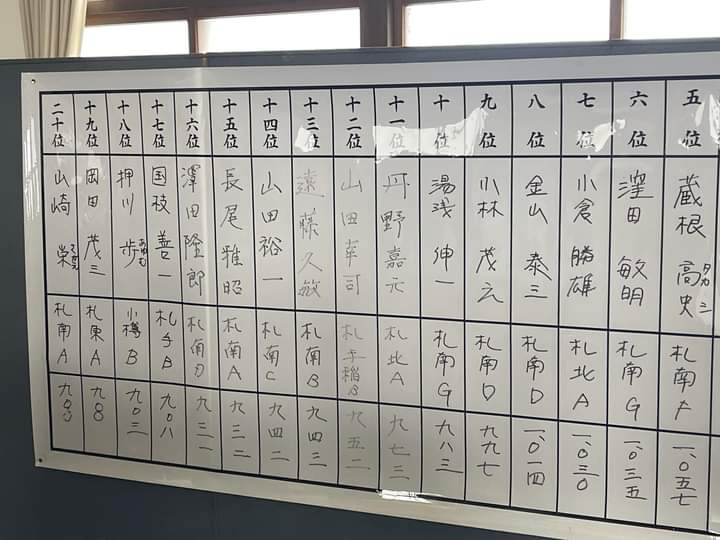 五位 蔵根 高史 タカシ 札南F 一、〇五七
六位 窪田 敏明 札南G 一、〇三五
七位 小倉 勝雄 札北A 一、〇三〇
八位 金山 泰三 札南D 一、〇一四
九位 小林 茂云 札南D 九九七
十位 湯浅 伸一 札南G 九八三
十一位 丹野嘉元 札北A 九七三
十二位 山田幸司 札手稲B 九五二
十三位 遠藤久敏 札南B 九四三
十四位 山田裕一 札南C 九四二
十五位 長尾雅昭 札南A 九三二
十六位 澤田隆郎 札南D 九三一
十七位 国枝善一 札手B 九〇八
十八位 押川 歩 あゆむ 小樽B 九〇三
十九位 岡田 茂三 札東A 九〇
二十位 山崎 栄 札南A 九〇